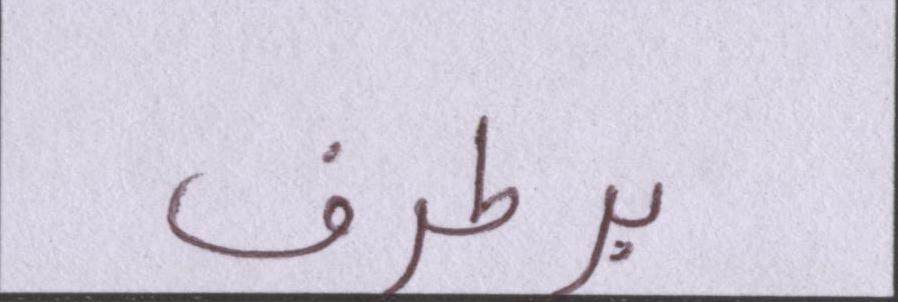 بر طرف